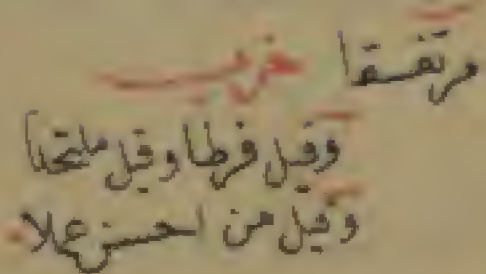 مرتفقا حزب
وقيل فرطا وقيل ملتحدا
وقيل من احسن عملا